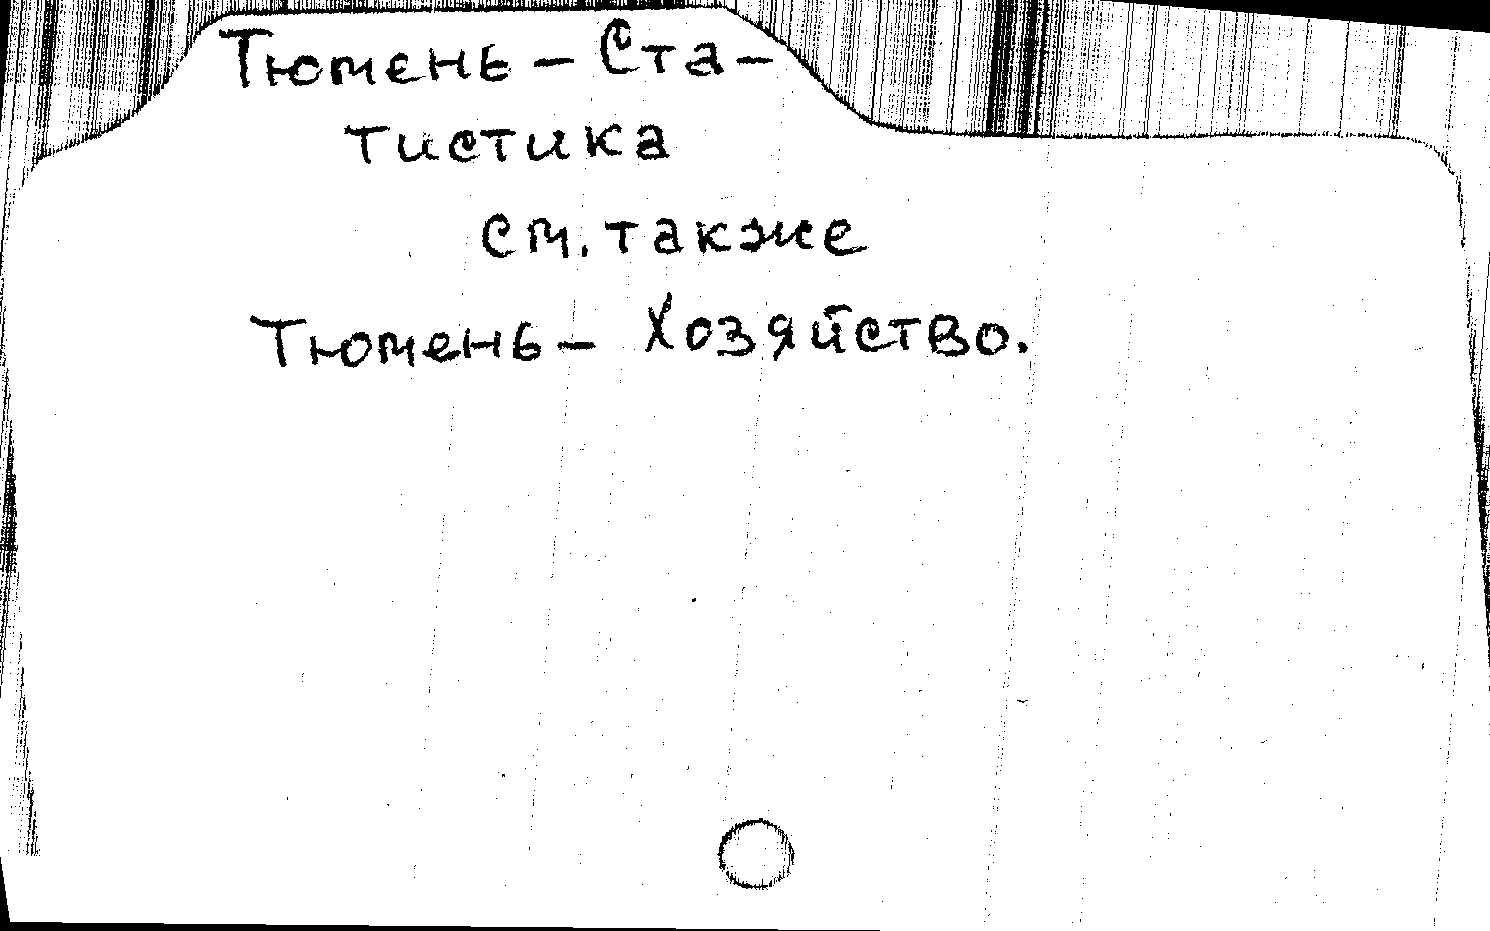 Тюмень – Ста-
тистика
см. также
Тюмень – Хозяйство.